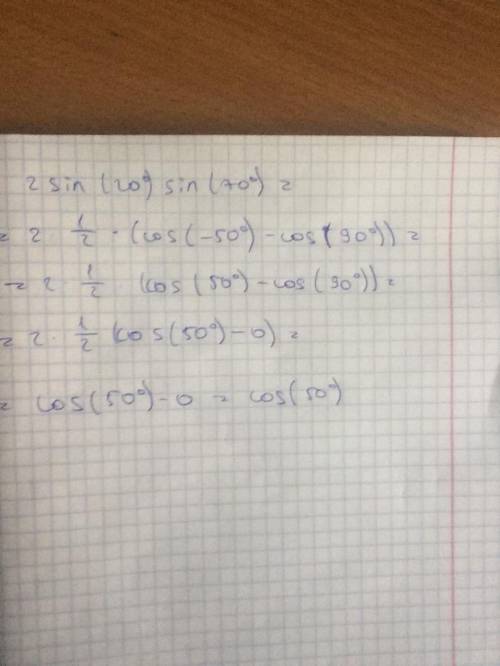 2 sin (20°) sin (70°) =
= 2 · 1/2 · (cos(-50°) - cos(90°)) =
= 2 · 1/2 (cos(50°) - cos(90°)) =
= 2 · 1/2 (cos(50°) - 0) =
= cos(50°) - 0 = cos(50°)